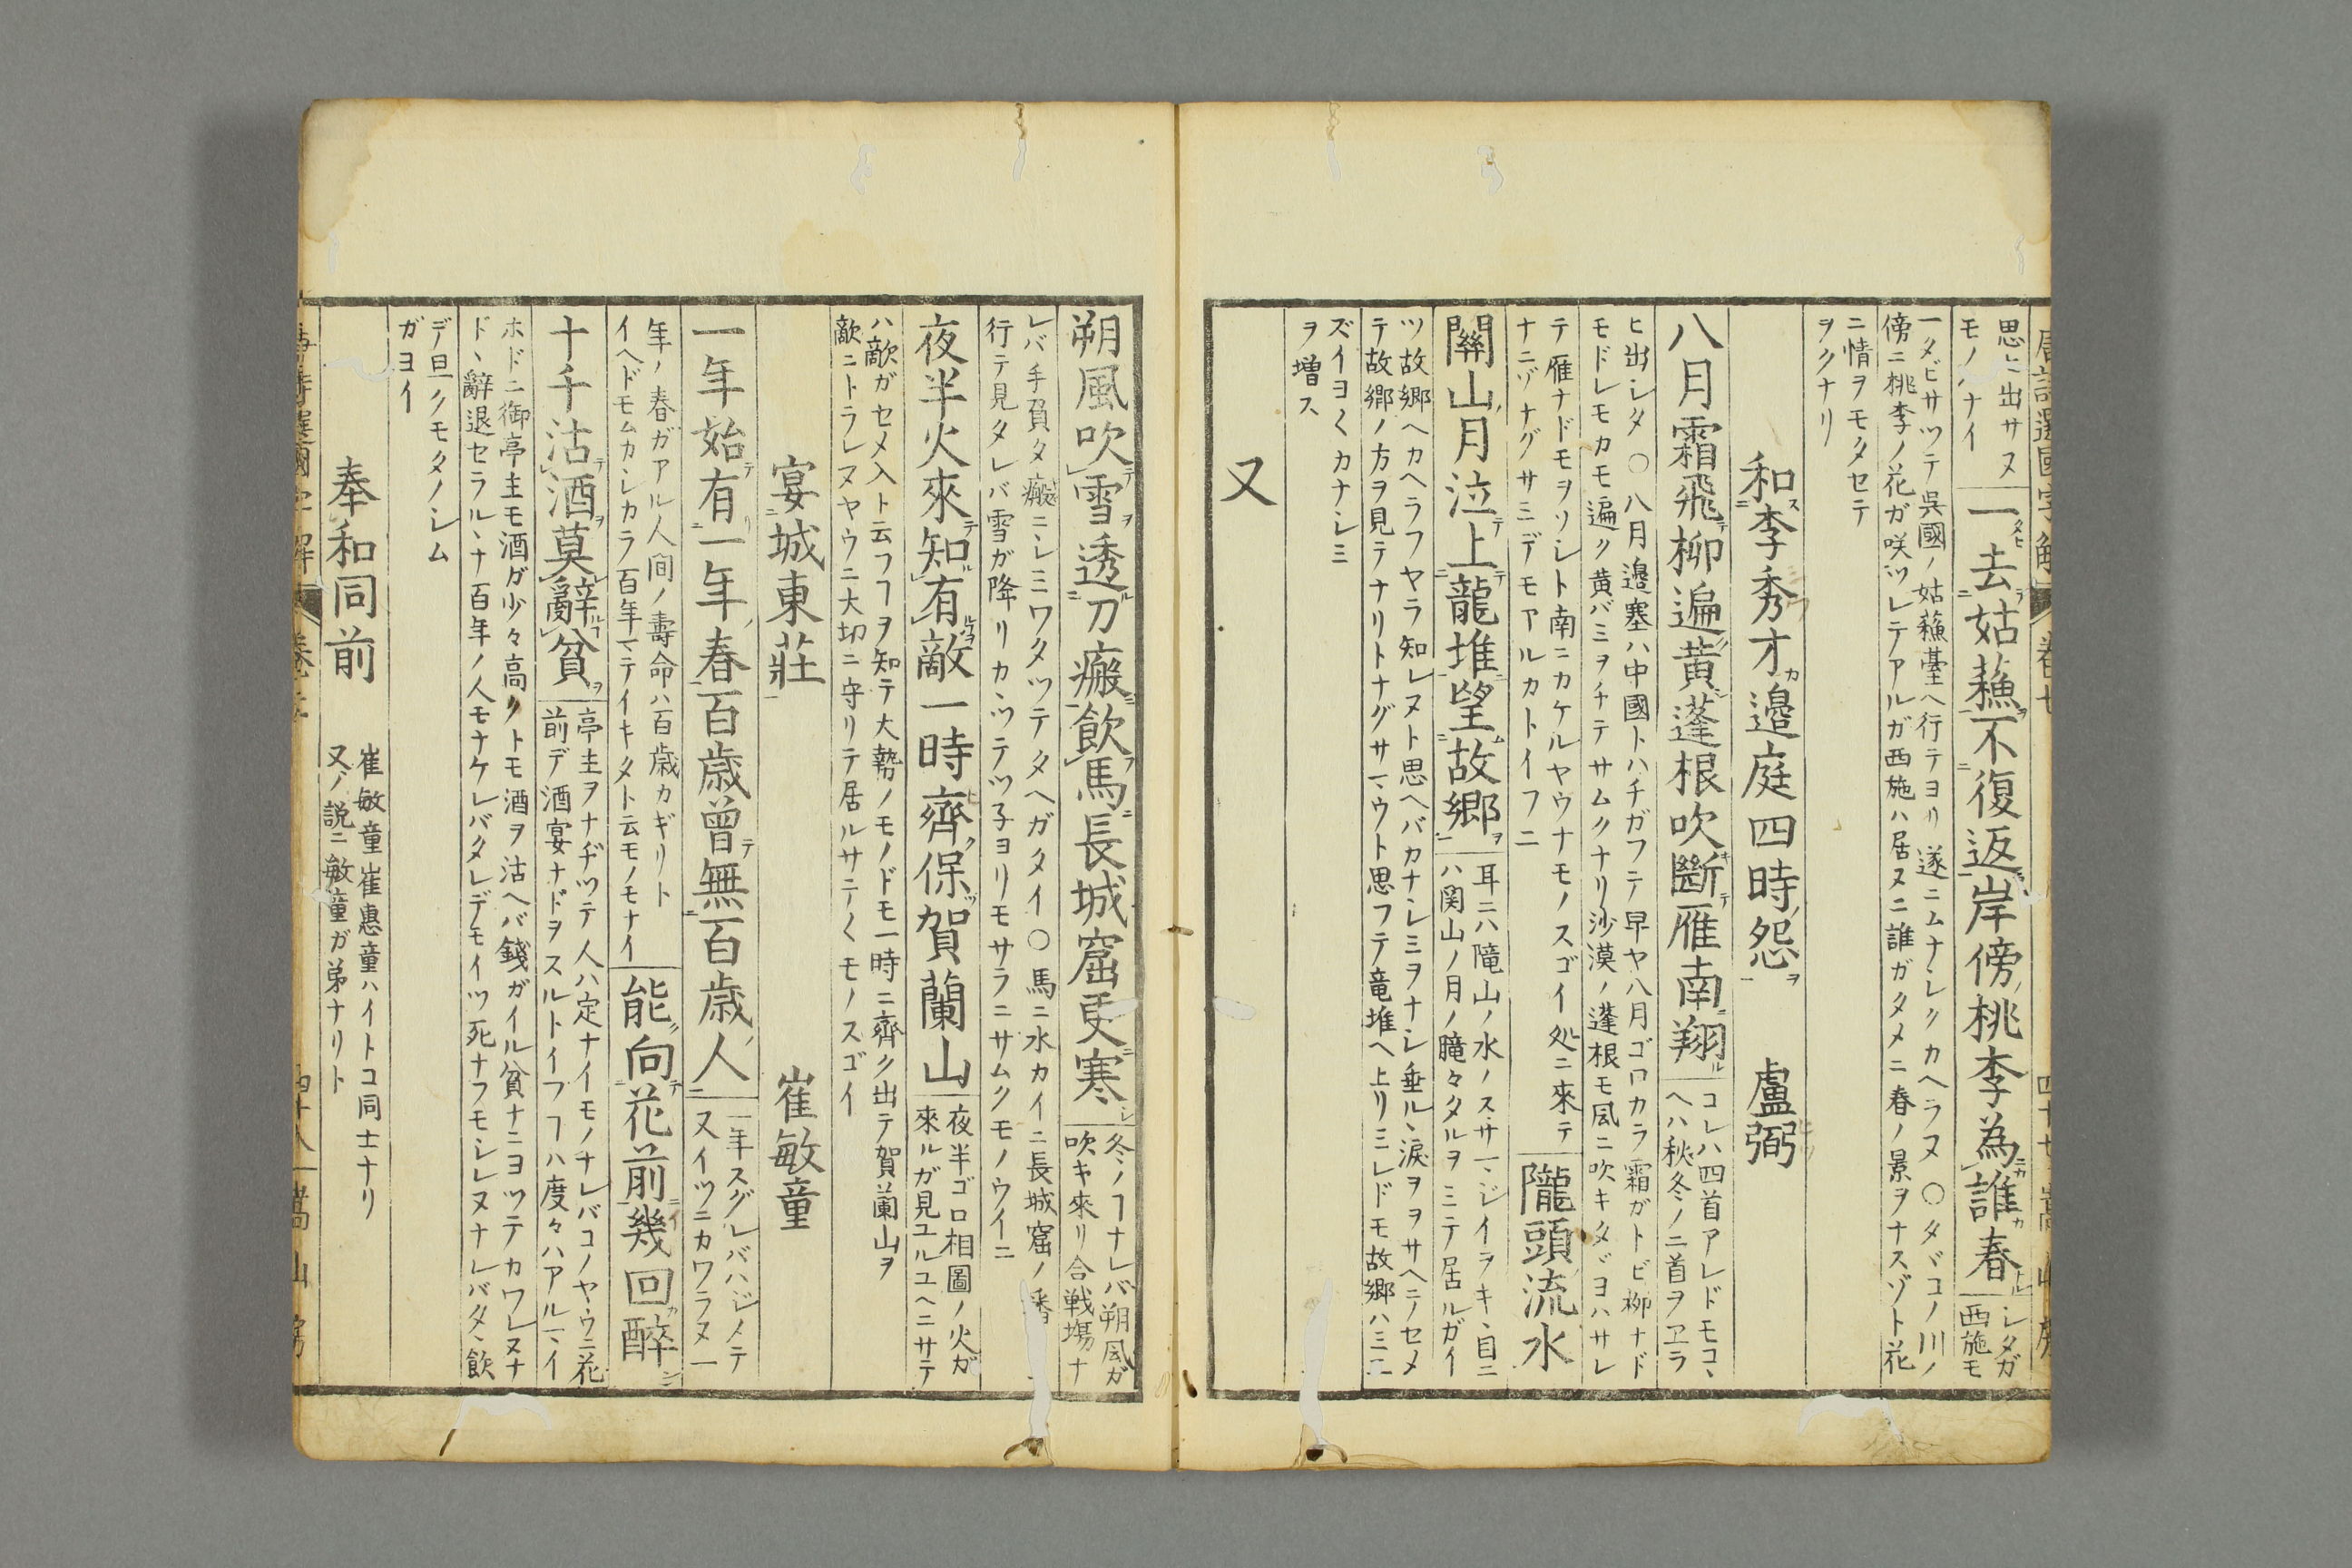 唐詩選國字解 卷七
思ヒ出サヌ
モノハナイ
一去姑蘇不復返岸傍桃李為誰春
シタガ
西施モ
一タビサツテ呉國ノ姑蘇臺ヘ行テヨリ遂ニムナシクカヘラヌ○タヾコノ川ノ
傍ニ桃李ノ花ガ咲ツレテアルガ西施ハ居ヌニ誰ガタメニ春ノ景ヲナスゾト花
ニ情ヲモタセテ
ヲクナリ
和李秀才邉庭四時怨 盧弼
八月霜飛柳遍黄蓬根吹斷雁南翔
コレハ四首アレドモコヽ
ヘハ秋冬ノ二首ヲヱラ
ヒ出シタ○八月邉塞ハ中國トハチガフテ早ヤ八月ゴロカラ霜ガトビ柳ナド
モドレモカモ遍ク黄バミヲチテサムクナリ沙漠ノ蓬根モ風ニ吹キタヾヨハサレ
テ雁ナドモヲソシト南ニカケルヤウナモノスゴイ処ニ來テ
ナニゾナグサミデモアルカトイフニ
隴頭流水
關山月泣上龍堆望故郷
耳ニハ隴山ノ水ノスサマジイヲキヽ目ニ
ハ関山ノ月ノ朧々タルヲミテ居ルガイ
ツ故郷ヘカヘラフヤラ知レヌト思ヘバカナシミヲナシ垂ルヽ涙ヲヲサヘニノセメ
テ故郷ノ方ヲ見テナリトナグサマウト思フテ竜堆ヘ上リミレドモ故郷ハミヘ
ズイヨ〱カナシミ
ヲ増ス
又
朔風吹雪透刀瘢飲馬長城窟更寒
冬ノコナレバ朔風ガ
吹キ來リ合戦塲ナ
レバ手負タ瘢ニシミワタツテタヘガタイ○馬ニ水カイニ長城窟ノ番
行テ見タレバ雪ガ降リカヽツテツ子ヨリモサラニサムクモノウイニ
夜半火來知有敵一時齊保賀蘭山
夜半ゴロ相圖ノ火ガ
來ルガ見ユルユヘニサテ
ハ敵ガセメ入ト云フコヲ知テ大勢ノモノドモ一時ニ齊ク出テ賀蘭山ヲ
敵ニトラレヌヤウニ大切ニ守リテ居ルサテ〱モノスゴイ
宴城東莊 崔敏童
一年始有一年春百歳曾無百歳人
一年スグレバハジメテ
又イツニカワラヌ一
年ノ春ガアル人間ノ壽命ハ百歳カギリト
イヘドモムカシカラ百年マテイキタト云モノモナイ
能向花前幾回醉
十千沽酒莫辭貧
亭主ヲナヂツテ人ハ定ナイモノナレバコノヤウニ花
前デ酒宴ナドヲスルトイフコハ度々ハアルマイ
ホドニ御亭主モ酒ガ少々高クトモ酒ヲ沽ヘバ錢ガイル貧ナニヨツテカワレヌナ
ドヽ辭退セラルヽナ百年ノ人モナケレバタレデモイツ死ナフモシレヌナレバタヾ飲
デ旦クモタノシム
ガヨイ
奉和同前
崔敏童崔惠童ハイトコ同士ナリ
又ノ説ニ敏童ガ弟ナリト